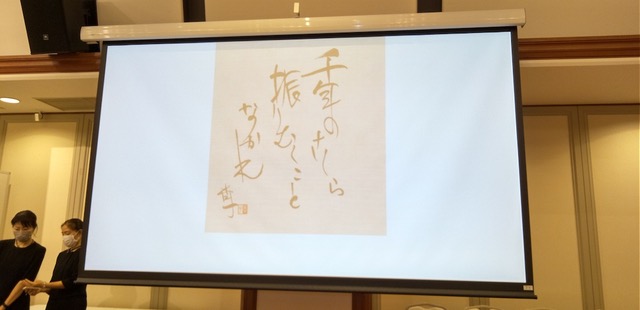 千年のさくら
振りむくこと
なかれ